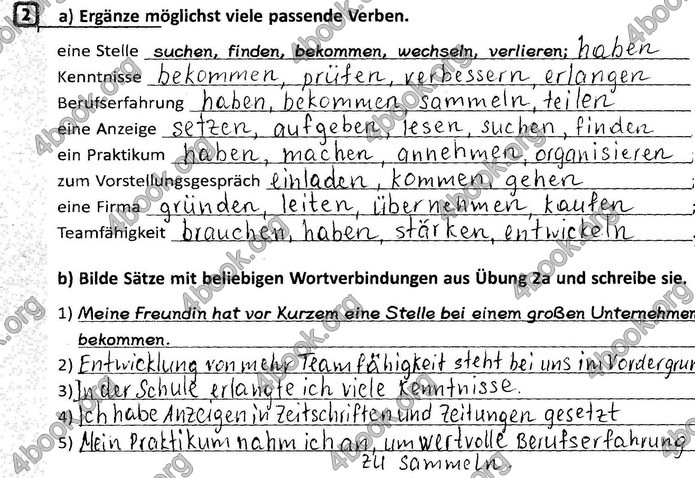 2 a) Ergänze möglichst viele passende Verben.
eine Stelle suchen, finden, bekommen, wechseln, verlieren; haben
Kenntnisse bekommen, prüfen, verbessern, erlangen
Berufserfahrung haben, bekommen, sammeln, teilen
eine Anzeige setzen, aufgeben, lesen, suchen, finden
ein Praktikum haben, machen, annehmen, organisieren
zum Vorstellungsgespräch einladen, kommen, gehen
eine Firma gründen, leiten, übernehmen, kaufen
Teamfähigkeit brauchen, haben, stärken, entwickeln
b) Bilde Sätze mit beliebigen Wortverbindungen aus Übung 2a und schreibe sie.
1) Meine Freundin hat vor Kurzem eine Stelle bei einem großen Unternehmen
bekommen.
2) Entwicklung von mehr Teamfähigkeit steht bei uns im Vordergrun
3) In der Schule erlangte ich viele Kenntnisse.
4) Ich habe Anzeigen in Zeitschriften und Zeitungen gesetzt
5) Mein Praktikum nahm ich an, um wertvolle Berufserfahrung
zu sammeln.
4book.org